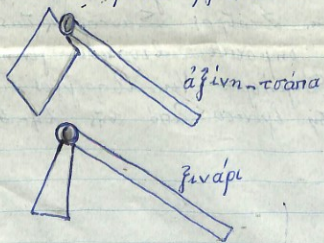 ἀξίνη-τσάπα
ξινάρι